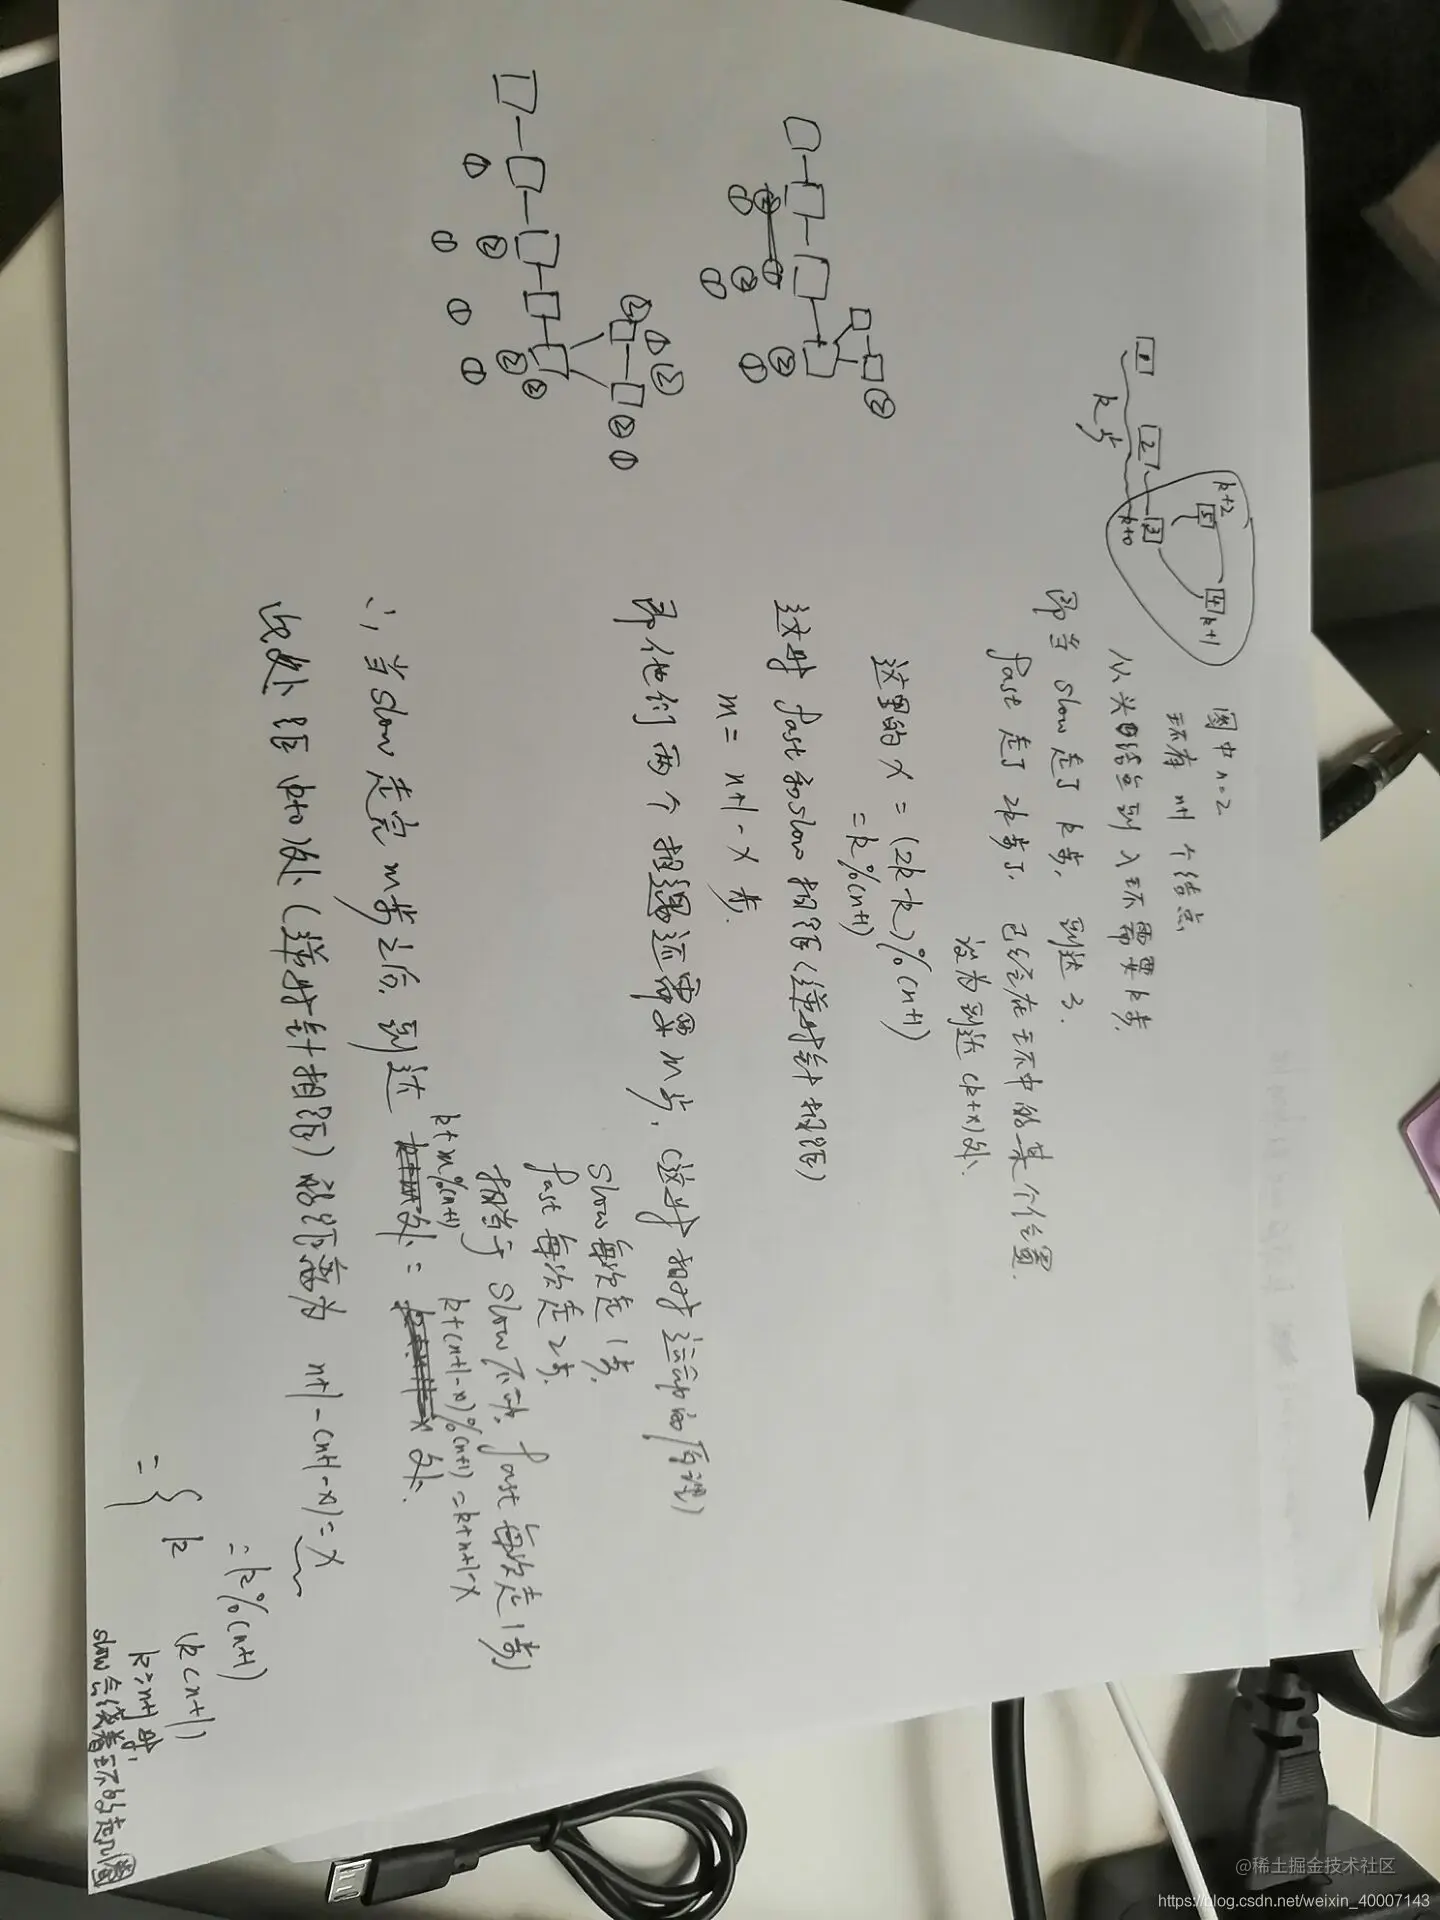 1
2
3
4
5
k步
k+0
k+1
k+2
图中n=2
环有 n+1 个结点
从头结点到入环需要k步
即当 slow 走了 k步, 到达 3.
fast 走了 2k步了, 已经在环中的某个位置.
设为到达 (k+x)处.
这里的 x = (2k-k)%(n+1)
= k%(n+1)
这时 fast和slow 相距(逆时针相距)
m = n+1-x 步.
即他们两个相遇还需要m步, (这时相对运动的原理)
slow每次走1步,
fast每次走2步.
相当于 slow不动, fast每次走1步)
∴ 当slow走完m步之后, 到达
k+m%(n+1)
k+(n+1-x)%(n+1) = k+n+1-x
处 =
处.
此处距 k+0处 (逆时针相距) 的距离为 n+1-(n+1-x)=x
= k%(n+1)
= { k (k<n+1)
k≥n+1时,
slow会绕着环的走几圈
① ② ① ② ① ② ① ② ②
① ① ② ① ① ② ② ② ① ② ② ①
@稀土掘金技术社区
https://blog.csdn.net/weixin_40007143